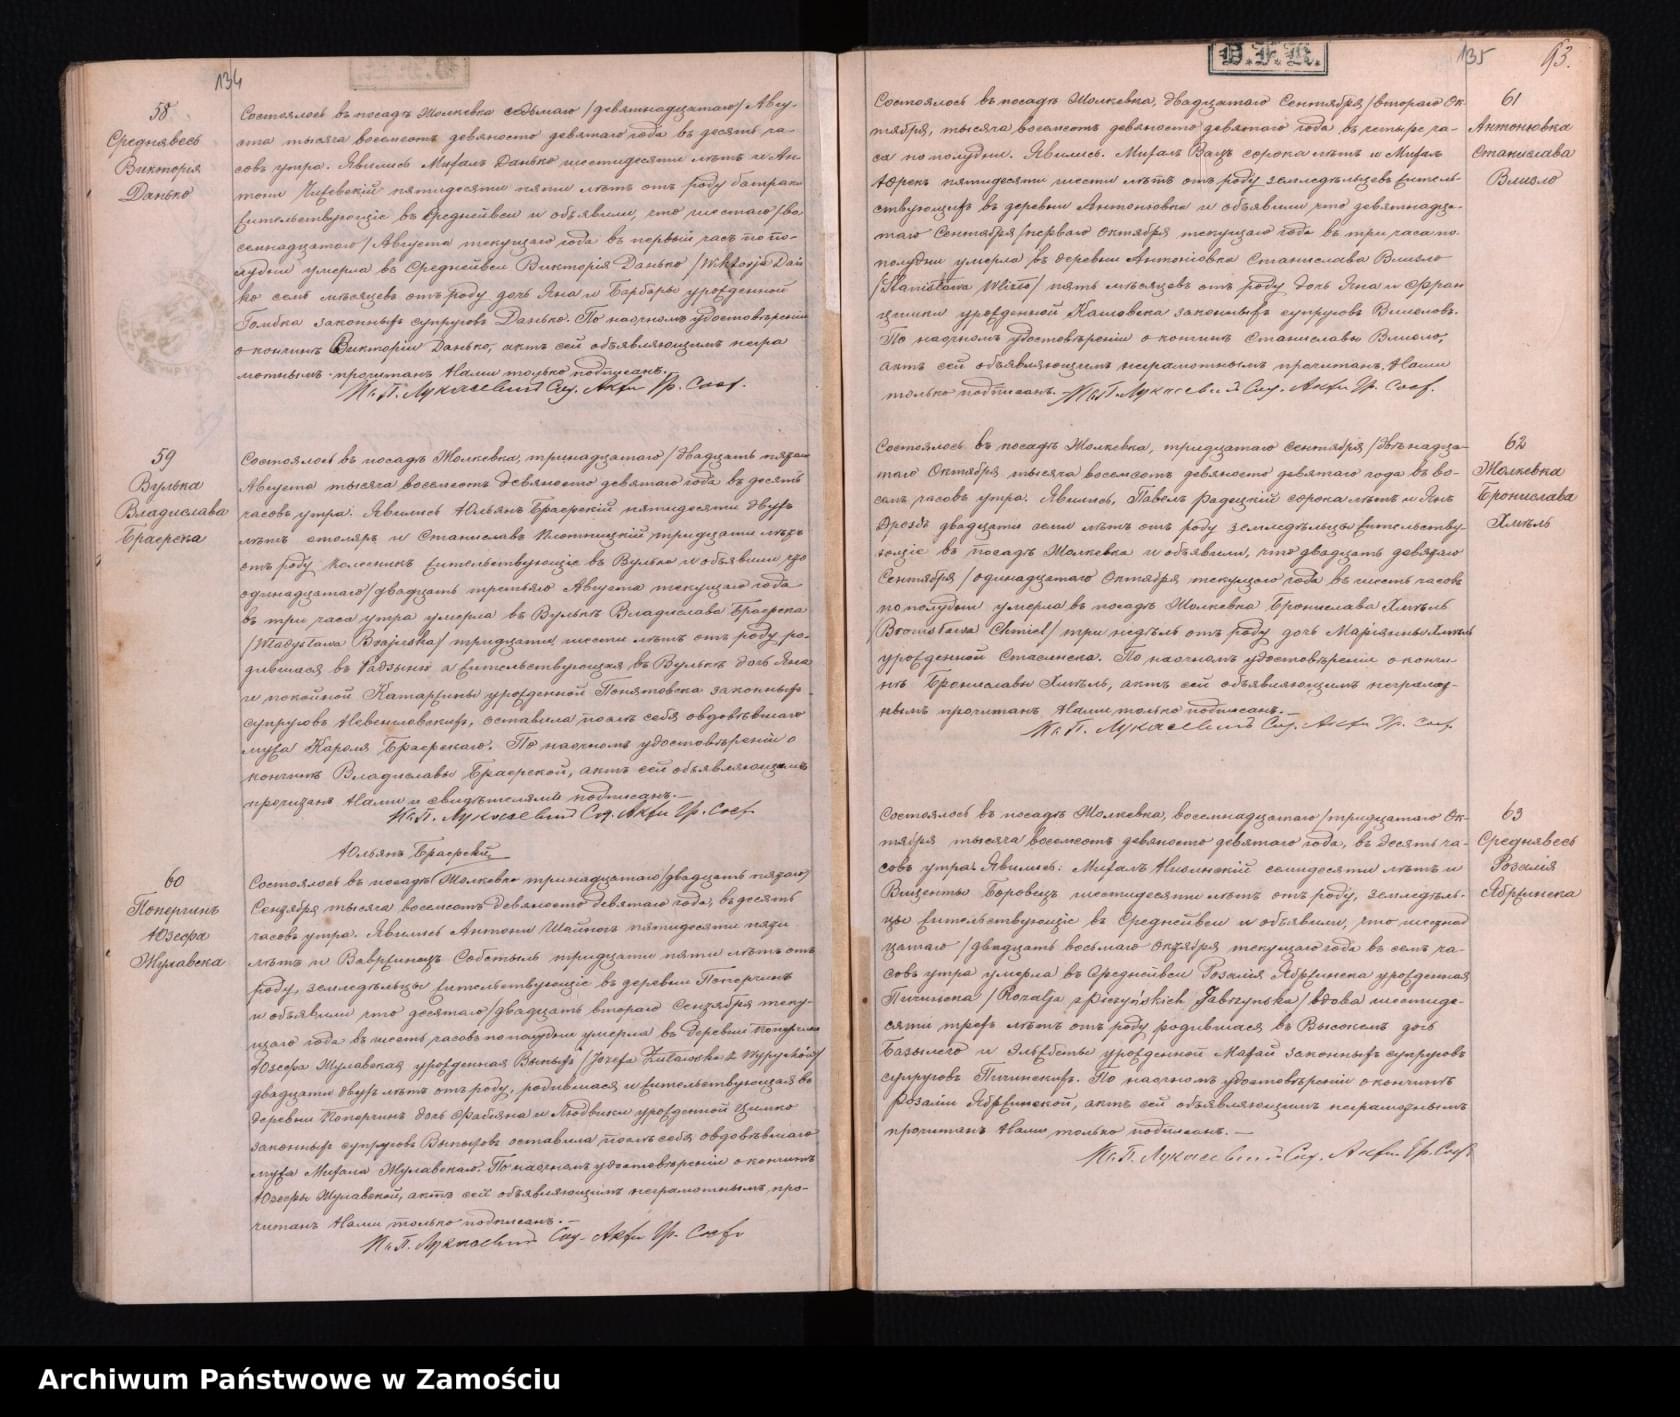 134
58
Среднявесь
Виктория
Данько
Состоялось въ посадѣ Жолкевка седьмаго /девятнадцатаго/ Авгу-
ста тысяча восемсотъ девяносто девятаго года въ десять ча-
совъ утра. Явились Михалъ Данько шестидесяти лѣтъ и Ан-
тони пятидесяти пяти лѣтъ отъ роду батраки
жительствующіе въ Среднейвси и объявили, что шестаго /во
семнадцатаго/ Августа текущаго года въ первый часъ по по-
лудни умерла въ Среднейвси Викторія Данько /Wiktorja Dań
ko семь мѣсяцевъ отъ роду дочь Яна и Барбары урожденной
Голибка законныхъ супруговъ Данько. По наочномъ удостовѣреніи
о кончинѣ Викторіи Данько, актъ сей объявляющимъ негра
мотнымъ прочитанъ Нами только подписанъ.
Кс. П. Лукасевичъ Сод. Акты Гр. Сост.
59
Вулька
Владислава
Браерска
Состоялось въ посадѣ Жолкевка, тринадцатаго /двадцать пятаго
Августа тысяча восемсотъ девяносто девятаго года въ десять
часовъ утра. Явились Юльянъ Браерскій пятидесяти двухъ
лѣтъ столяръ и Станиславъ Плотницкій тридцати лѣтъ
отъ роду колесникъ жительствующіе въ Вулькѣ и объявили что
одинадцатаго /двадцать третьяго Августа текущаго года
въ три часа утра умерла въ Вулькѣ Владислава Браерска
/Władysława Brajerska/ тридцати шести лѣтъ отъ роду, ро-
дившаяся въ а жительствующая въ Вулькѣ дочь Яна
и покойной Катаржины урожденной Понятовска законныхъ
супруговъ оставила послѣ себя овдовѣвшаго
мужа Кароля Браерскаго. По наочномъ удостовѣреніи о
кончинѣ Владиславы Браерской, актъ сей объявляющимъ
прочитанъ Нами и свидѣтелями подписанъ.—
Кс. П. Лукасевичъ Сод. Акты Гр. Сост.
Юльянъ Браерскій
60
Поперчинъ
Юзефа
Жулавска
Состоялось въ посадѣ Жолкевка тринадцатаго /двадцать пятаго/
Сентября тысяча восемсотъ девяносто девятаго года, въ десять
часовъ утра. Явились Антони пятидесяти пяти
лѣтъ и Вавржинецъ тридцати пяти лѣтъ отъ
роду, земледѣльцы жительствующіе въ деревни Поперчинъ
и объявили что десятаго /двадцать втораго Сентября теку-
щаго года въ шесть часовъ по полудни умерла въ деревни Поперчинъ
Юзефа Жулавская урожденная Выпыхъ /Józefa Żuławska z Wypychów/
двадцати двухъ лѣтъ отъ роду, родившаяся и жительствующая въ
деревни Поперчинъ дочь Фабяна и Людвики урожденной
законныхъ супруговъ Выпыховъ оставила послѣ себя овдовѣвшаго
мужа Михала Жулавскаго. По наочномъ удостовѣреніи о кончинѣ
Юзефы Жулавской, актъ сей объявляющимъ неграмотнымъ, про-
читанъ Нами только подписанъ.—
Кс. П. Лукасевичъ Сод. Акты Гр. Сост.
D.F.R.
135
93.
61
Антонювка
Станислава
Влизло
Состоялось въ посадѣ Жолкевка, двадцатаго Сентября /втораго Ок-
тября, тысяча восемсотъ девяносто девятаго года въ четыре ча-
са по полудни. Явились. Михалъ сорока лѣтъ и Михалъ
Юрекъ пятидесяти шести лѣтъ отъ роду земледѣльцевъ житель-
ствующихъ въ деревни Антонювка и объявили что девятнадца-
таго Сентября /перваго Октября текущаго года въ три часа по-
полудни умерла въ деревни Антонювка Станислава Влизло
/Stanisława Wlizło/ пять мѣсяцевъ отъ роду дочь Яна и Фран
цишки урожденной законныхъ супруговъ Влизловъ.
По наочномъ удостовѣреніи о кончинѣ Станиславы Влизло,
актъ сей объявляющимъ неграмотнымъ прочитанъ, Нами
только подписанъ. Кс. П. Лукасевичъ Сод. Акты Гр. Сост.
62
Жолкевка
Бронислава
Хмѣль
Состоялось въ посадѣ Жолкевка, тридцатаго Сентября /двѣнадца-
таго Октября тысяча восемсотъ девяносто девятаго года въ во-
семь часовъ утра. Явились, Павелъ Радецкій сорока лѣтъ и Янъ
Дроздъ двадцати семи лѣтъ отъ роду земледѣльцы жительству-
ющіе въ посадѣ Жолкевка и объявили, что двадцать девятаго
Сентября /одинадцатаго Октября текущаго года въ шесть часовъ
по полудни умерла въ посадѣ Жолкевка Бронислава Хмѣль
/Bronisława Chmiel/ три недѣль отъ роду дочь Маріянны Хмѣль
урожденной Стасинска. По наочномъ удостовѣреніи о кончи-
нѣ Брониславы Хмѣль, актъ сей объявляющимъ неграмот-
нымъ прочитанъ, Нами только подписанъ.—
Кс. П. Лукасевичъ Сод. Акты Гр. Сост.
63
Среднявесь
Розалія
Ябржинска
Состоялось въ посадѣ Жолкевка, восемнадцатаго /тридцатаго Ок-
тября тысяча восемсотъ девяносто девятаго года, въ десять ча-
совъ утра. Явились: Михалъ семидесяти лѣтъ и
Винценты Боровецъ шестидесяти лѣтъ отъ роду, земледѣль-
цы жительствующіе въ Среднейвси и объявили, что шестнад
цатаго /двадцать восьмаго Октября текущаго года въ семь ча-
совъ утра умерла въ Среднейвси Розалія Ябржинска урожденная
Пичинска /Rozalja z Piczyńskich Jabrzyńska/ вдова шестиде-
сяти трехъ лѣтъ отъ роду родившаяся въ Высокемъ дочь
Базылего и Эльжбеты урожденной законныхъ супруговъ
супруговъ Пичинскихъ. По наочномъ удостовѣреніи о кончинѣ
Розаліи Ябржинской, актъ сей объявляющимъ неграмотнымъ
прочитанъ Нами только подписанъ.—
Кс. П. Лукасевичъ Сод. Акты Гр. Сост.
Archiwum Państwowe w Zamościu